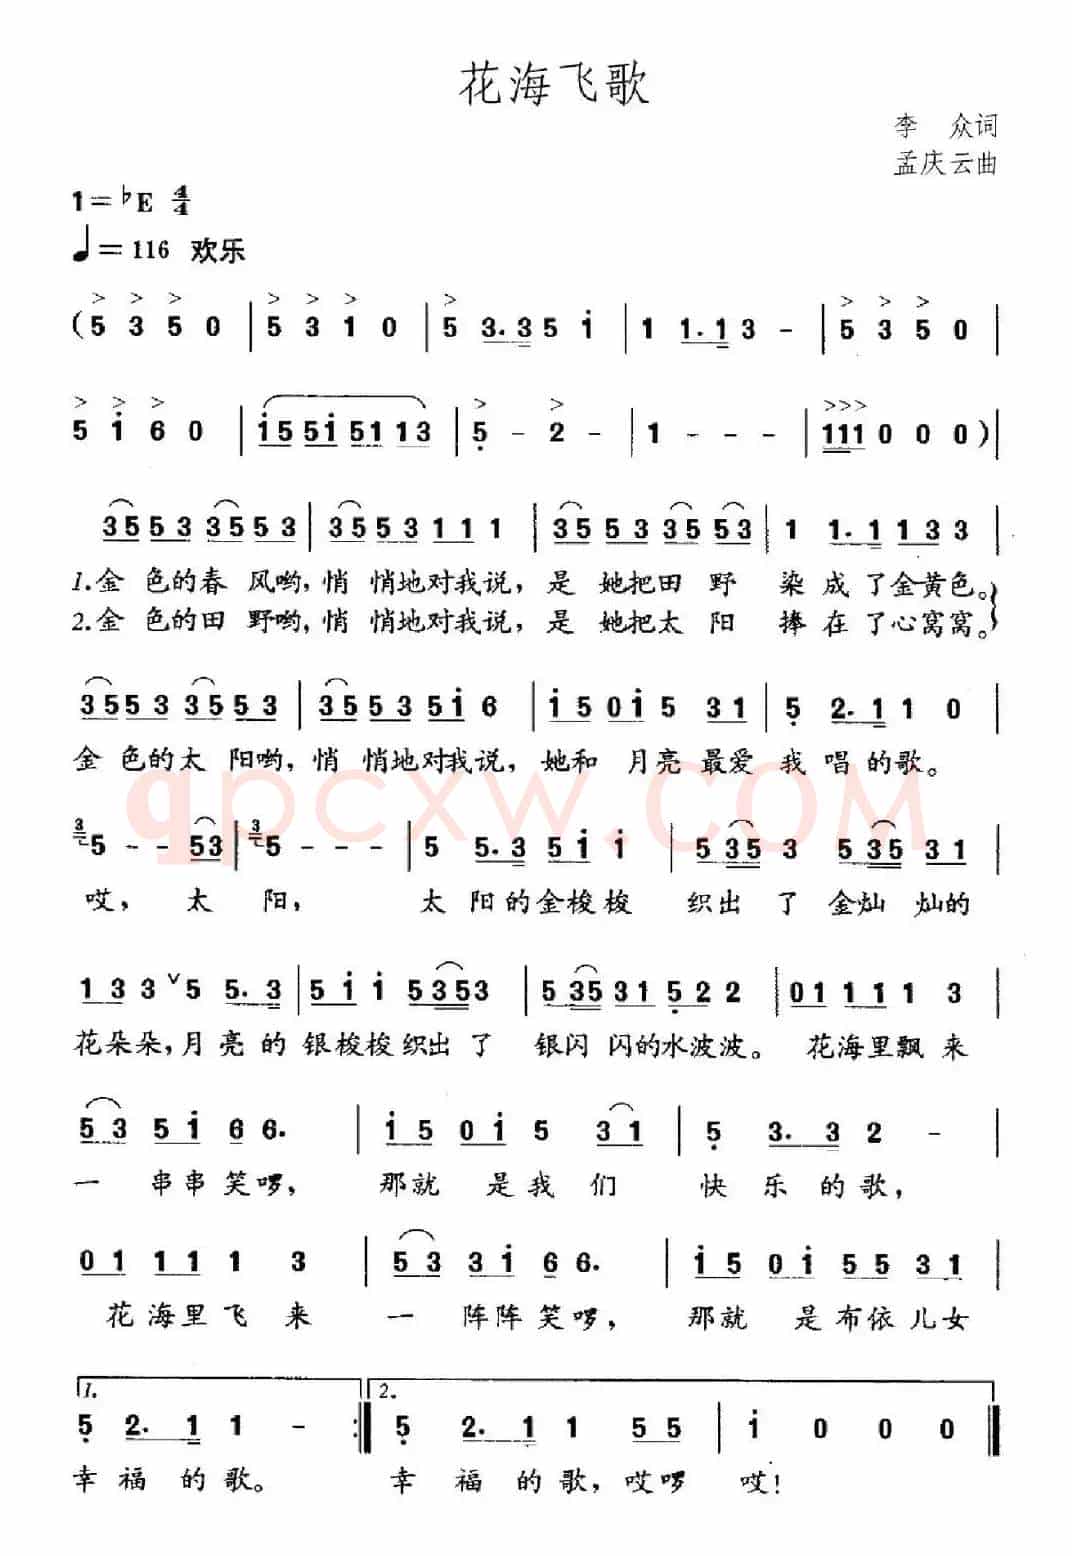 花海飞歌
李 众词
孟庆云曲
1=♭E 4/4
♩=116 欢乐
(5 3 5 0 | 5 3 1 0 | 5 3.3 5 i | 1 1.1 3 - | 5 3 5 0 |
5 i 6 0 | i5 5i 51 13 | 5 - 2 - | 1 - - - | 111 0 0 0)|
35 53 35 53 | 35 53 11 1 | 35 53 35 53 | 1 1.1 13 3 |
1.金 色的春 风哟,悄 悄地对我说,是 她把田 野 染成了金黄色。
2.金 色的田 野哟,悄 悄地对我说,是 她把太 阳 捧在了心窝窝。
35 53 35 53 | 35 53 5i 6 | i5 0i 5 31 | 5 2.1 1 0 |
金 色的太 阳哟,悄 悄地对我说,她和 月亮最爱我唱的歌。
qpcxw.com
3 5 - - 53 | 3 5 - - - | 5 5.3 5i i | 535 3 535 31 |
哎, 太 阳, 太 阳的金梭梭 织出了金灿 灿的
13 3 ∨ 5 5.3 | 5i i 535 3 | 535 31 52 2 | 01 11 1 3 |
花朵朵,月亮的银梭梭织出了 银闪 闪的水波波。 花海里飘来
53 5i 6 6. | i5 0i 5 31 | 5 3.3 2 - |
一 串串笑啰, 那就 是我们 快乐的歌,
01 11 1 3 | 53 3i 6 6. | i5 0i 55 31 |
花海里飞来 一 阵阵笑啰, 那就 是布依儿女
1. 2.
5 2.1 1 - :| 5 2.1 1 5 | i 0 0 0 ||
幸福的歌。 幸福的歌,哎啰 哎!